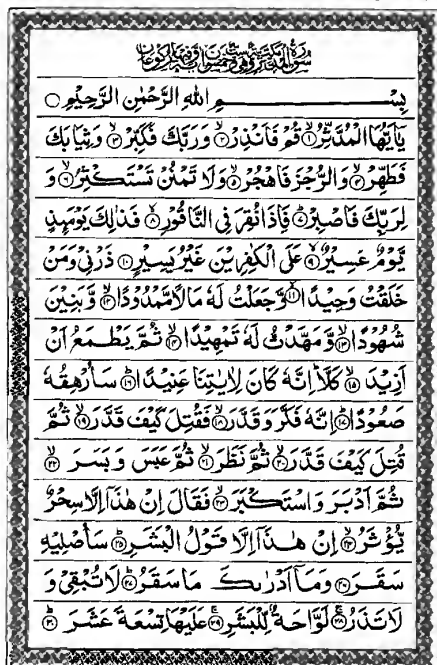 سُوْرَةُ الْمُدَّثِّرِ مَكِّيَّةٌ وَّهِيَ سِتٌّ وَّخَمْسُوْنَ اٰيَةً وَّفِيْهَا رُكُوْعَانِ
بِسْــــــمِ اللّٰهِ الرَّحْمٰنِ الرَّحِيْمِ ○
يٰۤاَيُّهَا الْمُدَّثِّرُ ۙ﴿۱﴾ قُمْ فَاَنْذِرْ ۙ﴿۲﴾ وَرَبَّكَ فَكَبِّرْ ۙ﴿۳﴾ وَثِيَابَكَ
فَطَهِّرْ ۙ﴿۴﴾ وَالرُّجْزَ فَاهْجُرْ ۙ﴿۵﴾ وَلَا تَمْنُنْ تَسْتَكْثِرُ ۙ﴿۶﴾ وَ
لِرَبِّكَ فَاصْبِرْ ؕ﴿۷﴾ فَاِذَا نُقِرَ فِي النَّاقُوْرِ ۙ﴿۸﴾ فَذٰلِكَ يَوْمَىِٕذٍ
يَّوْمٌ عَسِيْرٌ ۙ﴿۹﴾ عَلَى الْكٰفِرِيْنَ غَيْرُ يَسِيْرٍ ﴿۱۰﴾ ذَرْنِيْ وَمَنْ
خَلَقْتُ وَحِيْدًا ۙ﴿۱۱﴾ وَّجَعَلْتُ لَهٗ مَالًا مَّمْدُوْدًا ۙ﴿۱۲﴾ وَّبَنِيْنَ
شُهُوْدًا ۙ﴿۱۳﴾ وَّمَهَّدْتُّ لَهٗ تَمْهِيْدًا ۙ﴿۱۴﴾ ثُمَّ يَطْمَعُ اَنْ
اَزِيْدَ ۙ﴿۱۵﴾ كَلَّا ؕ اِنَّهٗ كَانَ لِاٰيٰتِنَا عَنِيْدًا ؕ﴿۱۶﴾ سَاُرْهِقُهٗ
صَعُوْدًا ؕ﴿۱۷﴾ اِنَّهٗ فَكَّرَ وَقَدَّرَ ۙ﴿۱۸﴾ فَقُتِلَ كَيْفَ قَدَّرَ ۙ﴿۱۹﴾ ثُمَّ
قُتِلَ كَيْفَ قَدَّرَ ۙ﴿۲۰﴾ ثُمَّ نَظَرَ ۙ﴿۲۱﴾ ثُمَّ عَبَسَ وَبَسَرَ ۙ﴿۲۲﴾
ثُمَّ اَدْبَرَ وَاسْتَكْبَرَ ۙ﴿۲۳﴾ فَقَالَ اِنْ هٰذَاۤ اِلَّا سِحْرٌ
يُّؤْثَرُ ۙ﴿۲۴﴾ اِنْ هٰذَاۤ اِلَّا قَوْلُ الْبَشَرِ ؕ﴿۲۵﴾ سَاُصْلِيْهِ
سَقَرَ ﴿۲۶﴾ وَمَاۤ اَدْرٰىكَ مَا سَقَرُ ؕ﴿۲۷﴾ لَا تُبْقِيْ وَ
لَا تَذَرُ ۚ﴿۲۸﴾ لَوَّاحَةٌ لِّلْبَشَرِ ۚ﴿۲۹﴾ عَلَيْهَا تِسْعَةَ عَشَرَ ؕ﴿۳۰﴾